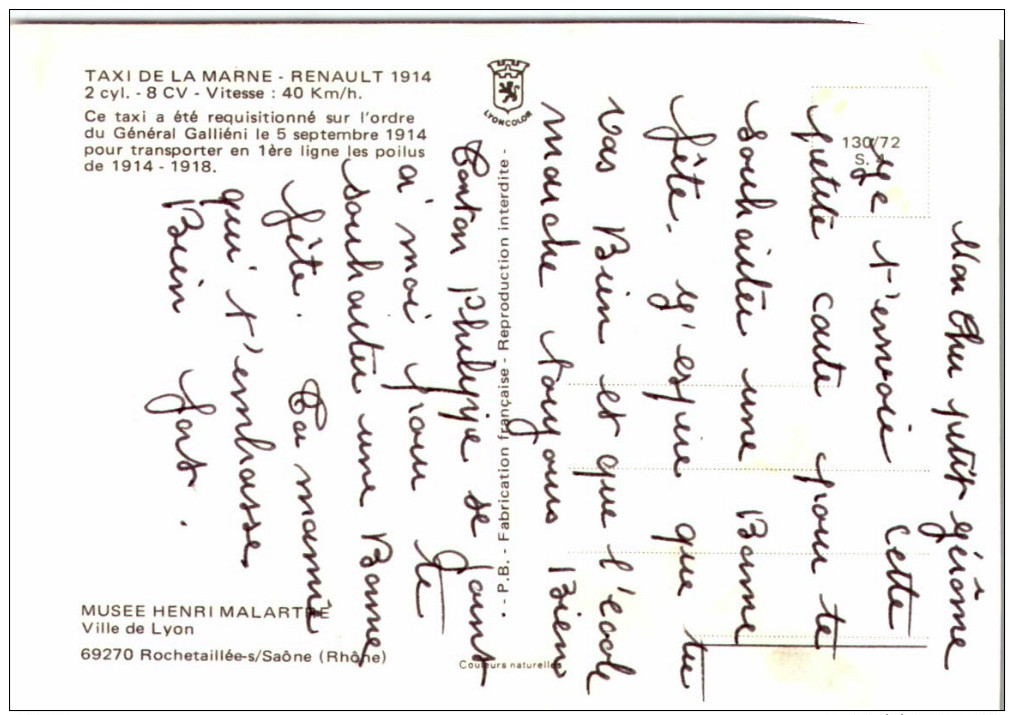 TAXI DE LA MARNE - RENAULT 1914
2 cyl. - 8 CV - Vitesse : 40 Km/h.
Ce taxi a été requisitionné sur l'ordre
du Général Galliéni le 5 septembre 1914
pour transporter en 1ère ligne les poilus
de 1914 - 1918.
MUSEE HENRI MALARTRE
Ville de Lyon
69270 Rochetaillée-s/Saône (Rhône)
LYONCOLOR
• - P.B. - Fabrication française - Reproduction interdite -
Couleurs naturelles
130/72
S. 4
Mon Cher petit gérôme
ge t'envoie cette
petite carte pour te
souhaiter une Bonne
fête. g'espère que tu
vas Bien et que l'école
marche tougours Bien
Tonton philippe se goint
a' moi pour te
souhaiter une Bonne
fête. Ta mamie
qui t'embrasse
Bien fort.